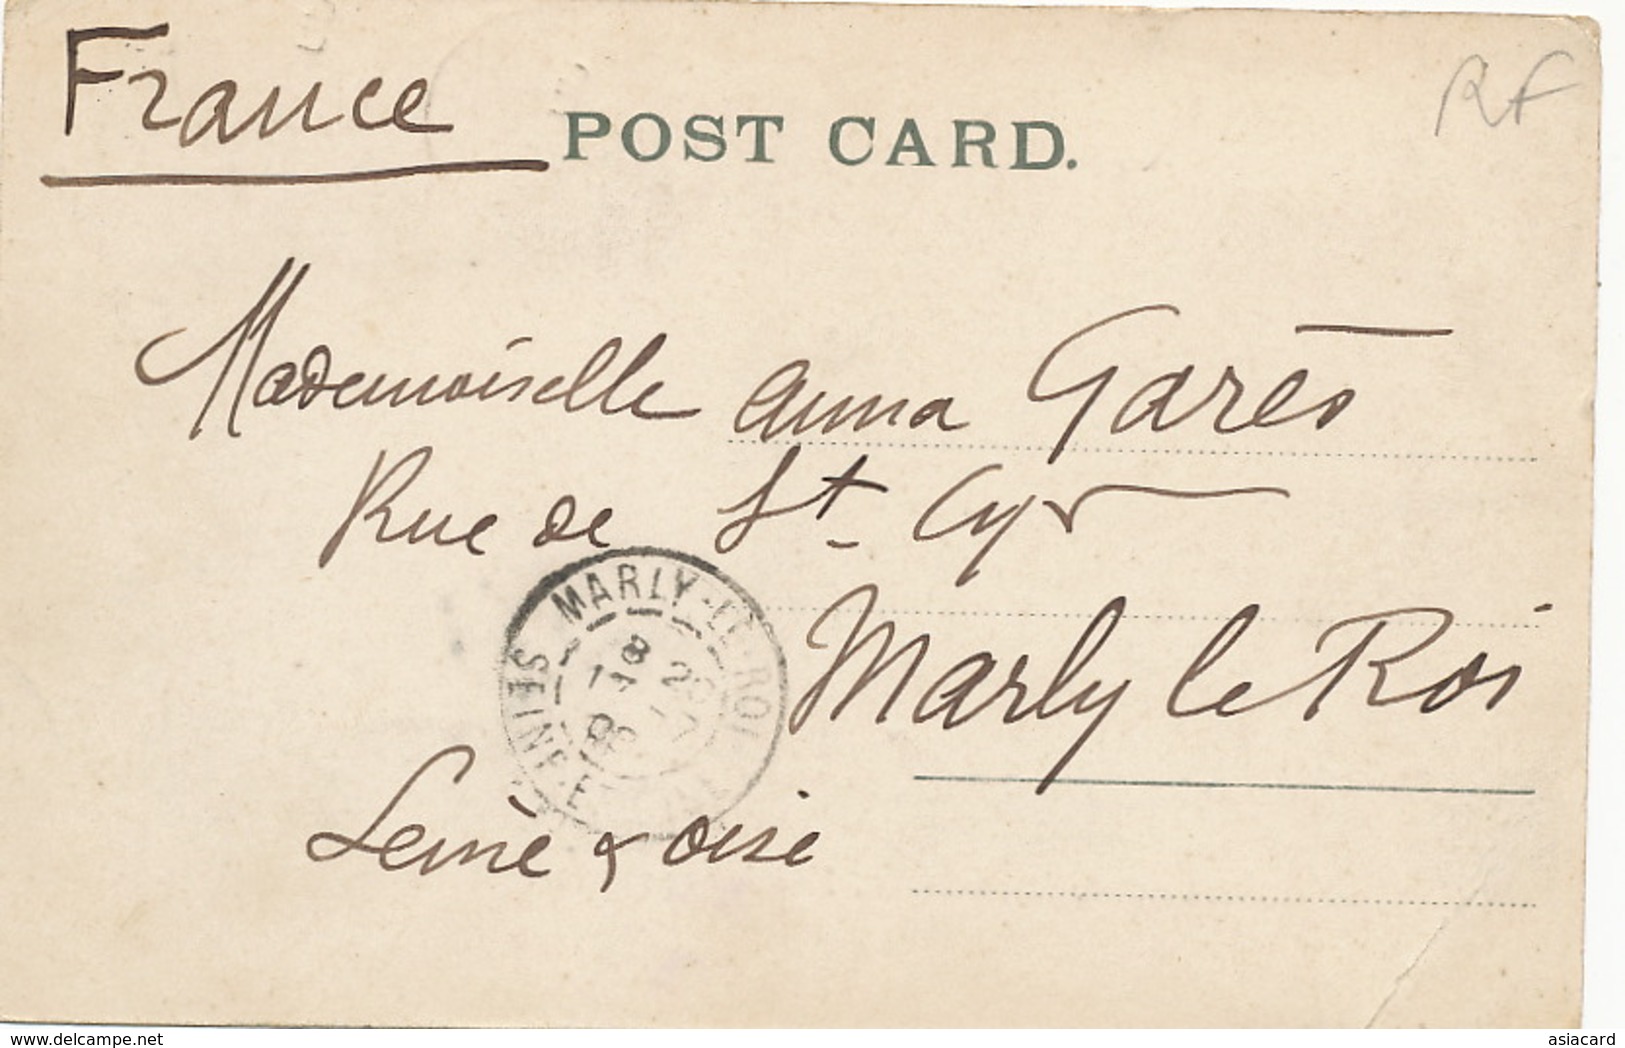 France
POST CARD.
RF
Mademoiselle Anna Garès
Rue de St. Cyr
Marly le Roi
MARLY-LE-ROI
SEINE-ET-OISE
Seine & Oise
www.delcampe.net
asiacard